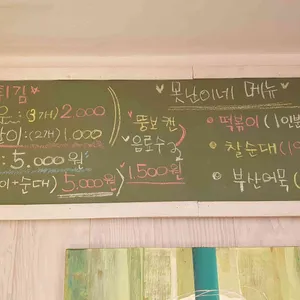 튀김
(3개) 2,000
이 : (2개) 1,000
: 5,000원
이+순대) 5,000원
뚱보캔
음료수
1,500원
♥ 못난이네 메뉴 ♥
• 떡볶이 (1인분
• 찰순대 (1
• 부산어묵 (